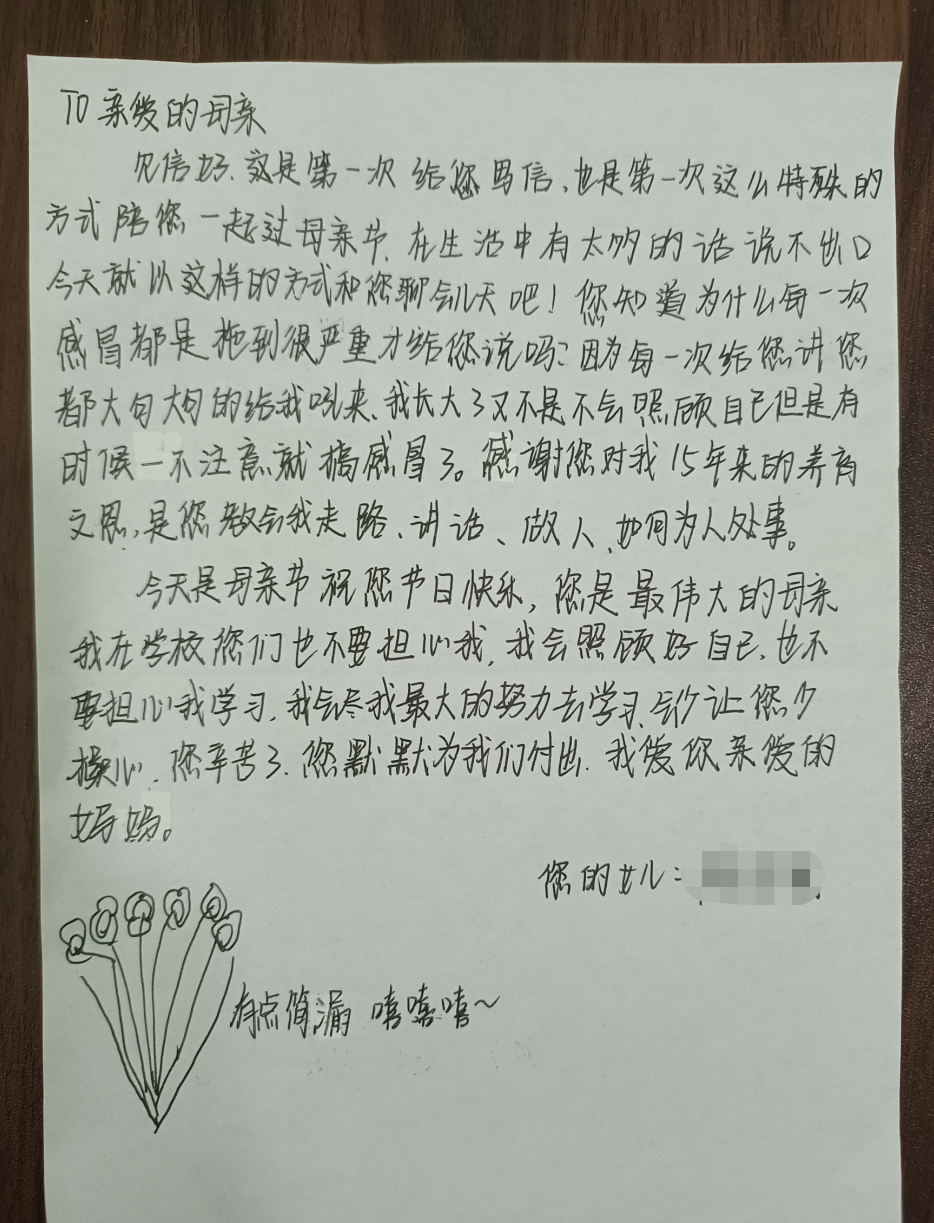 TO亲爱的母亲
见信好.这是第一次给您写信、也是第一次这么特殊的
方式陪您一起过母亲节.在生活中有太多的话说不出口
今天就以这样的方式和您聊会儿天吧！您知道为什么每一次
感冒都是拖到很严重才给您说吗？因为每一次给您讲您
都大句大句的给我吼来、我长大了又不是不会照顾自己但是有
时候一不注意就搞感冒了。感谢您对我15年来的养育
之恩,是您教会我走路、讲话、做人、如何为人处事。
今天是母亲节祝您节日快乐,您是最伟大的母亲
我在学校您们也不要担心我,我会照顾好自己.也不
要担心我学习.我会尽我最大的努力去学习.会让您少
操心.您辛苦了.您默默为我们付出.我爱你亲爱的
妈妈。
您的女儿：
有点简漏 嘻嘻嘻～